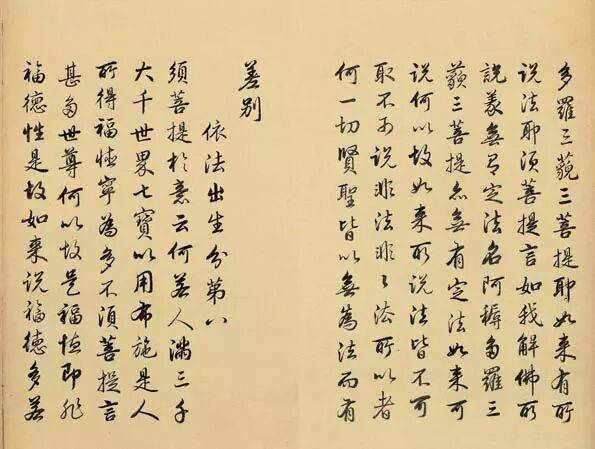 多羅三藐三菩提耶如来有所
說法耶須菩提言如我解佛所
說義無有定法名阿耨多羅三
藐三菩提亦無有定法如来可
說何以故如来所說法皆不可
取不可說非法非〻法所以者
何一切賢聖皆以無為法而有
差別
依法出生分第八
須菩提於意云何若人滿三千
大千世界七寶以用布施是人
所得福德寧為多不須菩提言
甚多世尊何以故是福德即非
福德性是故如来說福德多若